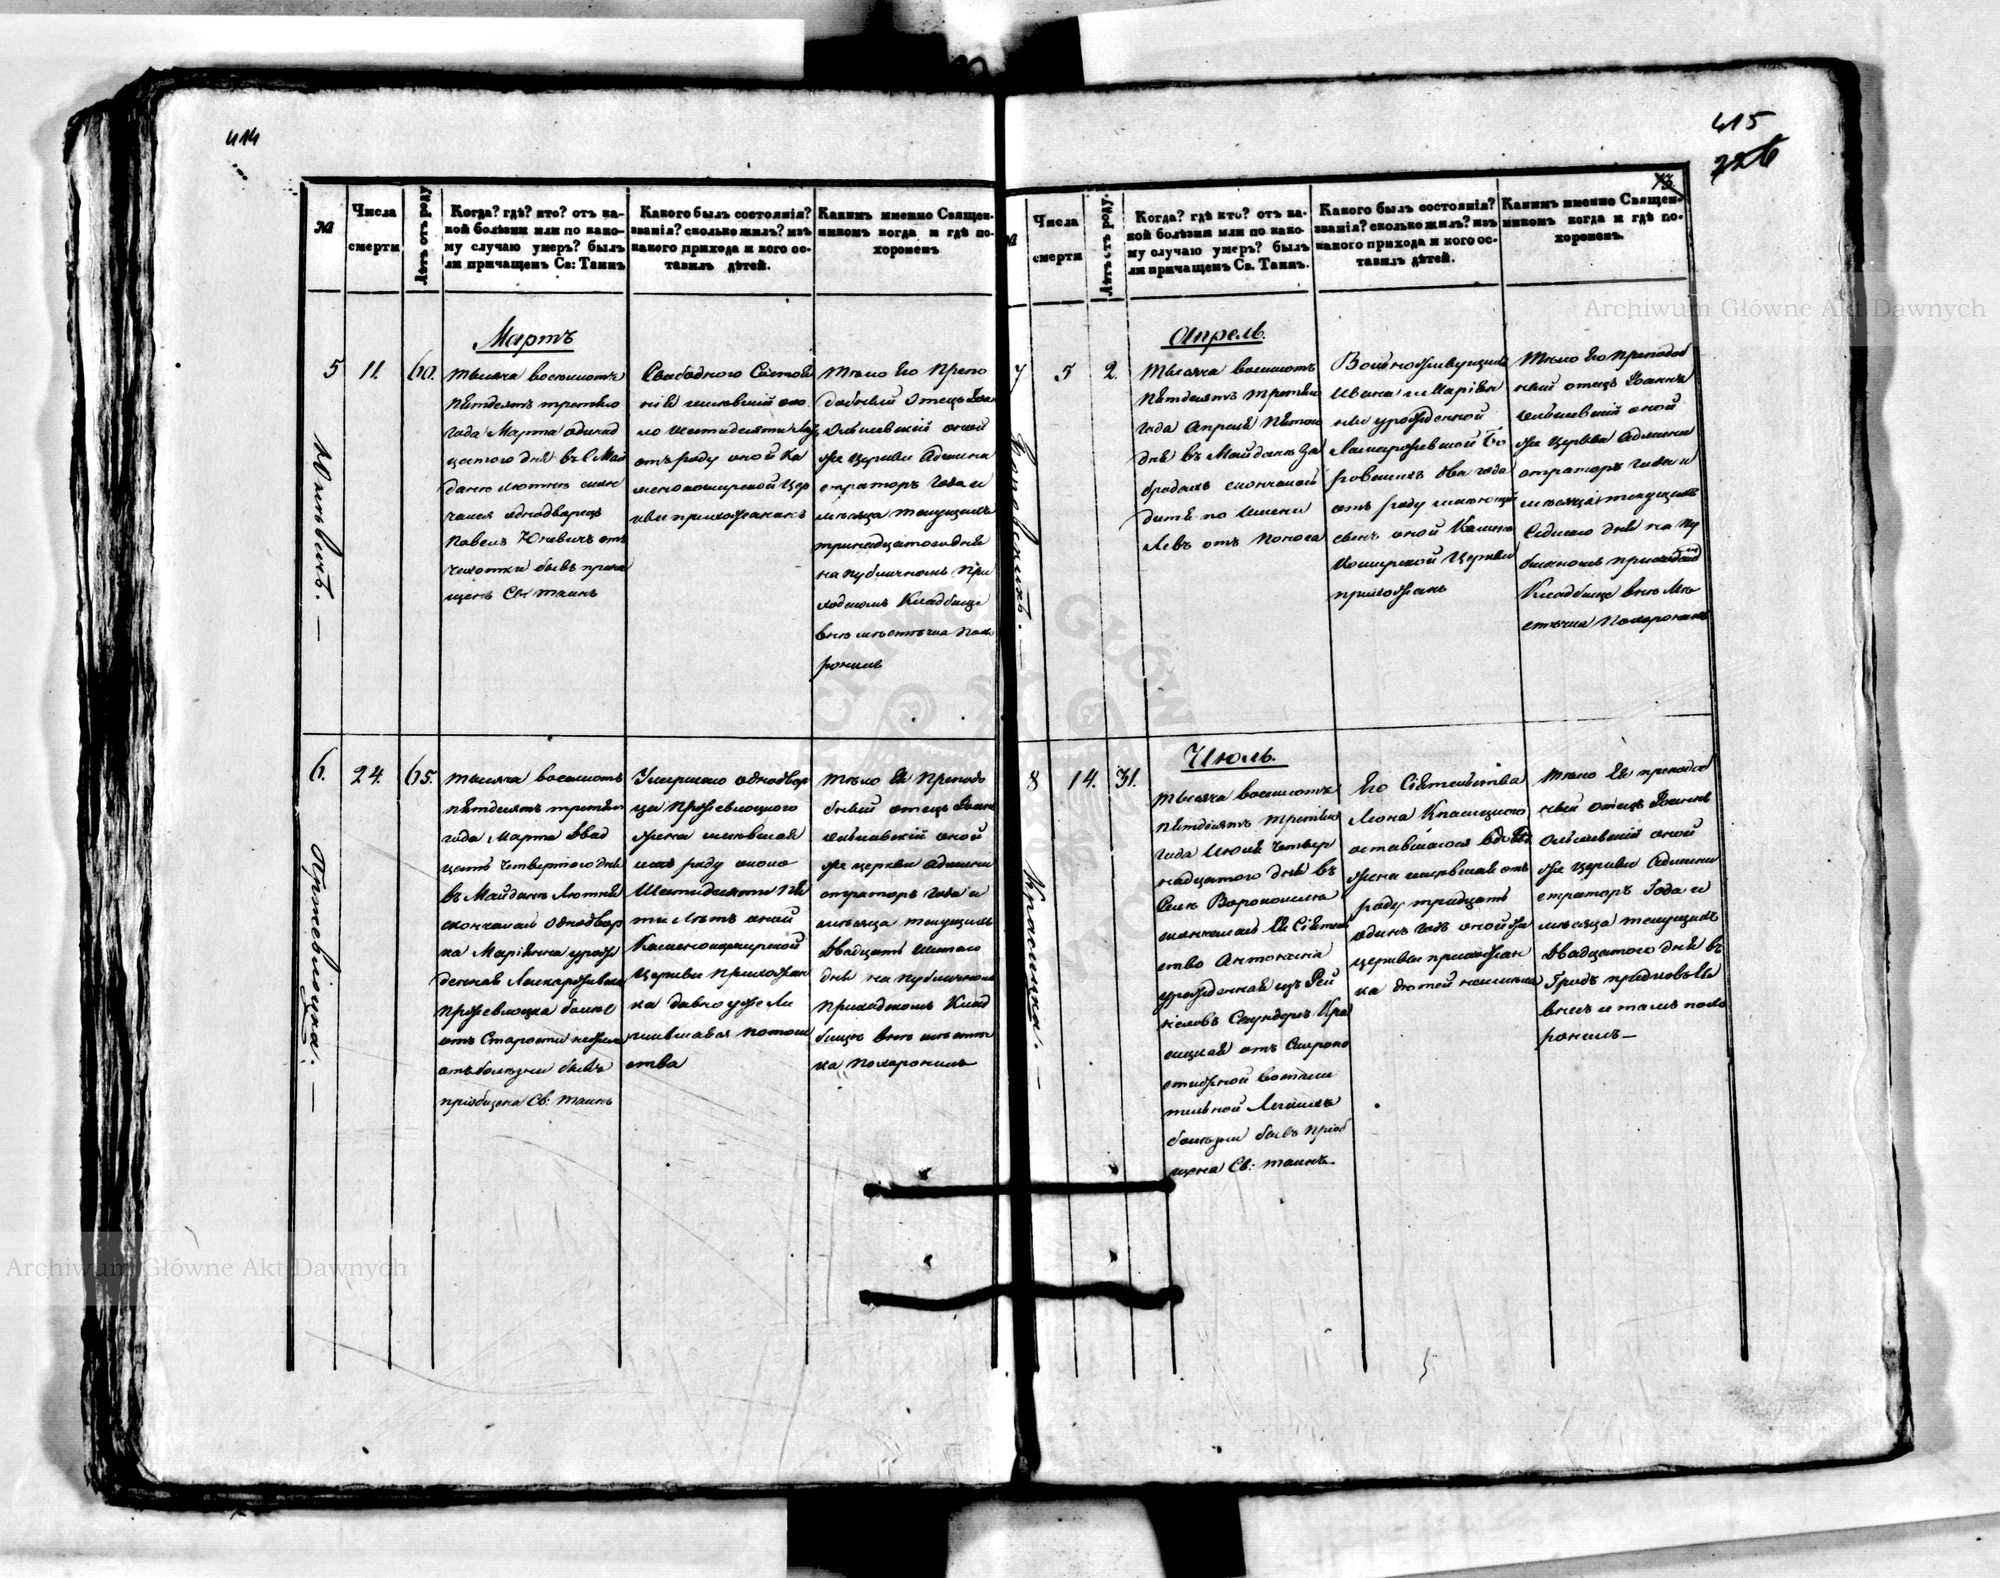 414
№
Числа
смерти
Лѣтъ отъ роду
Когда? гдѣ? кто? отъ ка-
кой болѣзни или по како-
му случаю умеръ? былъ
ли причащенъ Св: Таинъ
Какого былъ состоянія?
званія? сколько жилъ? изъ
какого прихода и кого ос-
тавилъ дѣтей.
Какимъ именно Священ-
никомъ когда и гдѣ по-
хороненъ
Мартъ
5
11.
60.
Тысяча восемьсотъ
пятдесятъ третьяго
года Марта одинад
цатого дня въ Май
данѣ Лютнѣ скон
чался однодворецъ
Павелъ Юневичъ отъ
чахотки бывъ прича
щенъ Св. таинъ
Свободного Состоя
нія имѣвшій око
ло шестидесяти лѣтъ
отъ роду оной Ка
менокоширской Цер
кви прихожанинъ
Тѣло Его Препо
добный Отецъ Іоан
Ольшевскій оной
же Церкви Админи
страторъ года и
мѣсяца текущихъ
тринадцатого дня
на публичномъ При
ходскомъ Кладбищѣ
внѣ мѣстечка Похо
ронилъ
6.
24.
65.
Тысяча восемьсотъ
пятдесятъ третьяго
года Марта двад
цать Четвертого дня
въ Майданѣ Лютнѣ
скончалась однодвор
ка Маріянна урож
денная
отъ Старости
отъ болезни бывъ
пріобщена Св: таинъ
Умершаго однодвор
ца
жена имѣвшая
отъ роду около
Шестидесяти пя
ти лѣтъ оной
Каменокоширской
Церкви прихожан
ка давно уже Ли
шившаяся потом
ства
Тѣло Ея Преподо
бный отецъ Іоанъ
Ольшевскій оной
же церкви Админи
страторъ года и
мѣсяца текущихъ
Двадцать шестого
дня на публичномъ
Приходскомъ Клад
бищѣ внѣ мѣстеч
ка похоронилъ
415
226
№
Числа
смерти
Лѣтъ отъ роду.
Когда? гдѣ кто? отъ ка-
кой болѣзни или по како-
му случаю умеръ? былъ
ли причащенъ Св. Таинъ.
Какого былъ состоянія?
званія? сколько жилъ? изъ
какого прихода и кого ос-
тавилъ дѣтей.
Какимъ именно Священ-
никомъ когда и гдѣ по-
хороненъ.
Апрель.
7
5
2.
Тысяча восемьсотъ
пятдесятъ третьяго
года Апреля пятого
дня въ Майданѣ За
бродахъ скончалось
дитя по имени
Левъ отъ поноса
Вольноживущихъ
Ивана и Маріян
ны урожденной
два года
отъ роду имеющій
сынъ оной Камено
коширской Церкви
прихожанъ
Тѣло Его Преподоб
ный отецъ Іоаннъ
Ольшевскій оной
же Церкви Админи
страторъ года и
мѣсяца текущихъ
Седмого дня на пу
бличномъ приходскомъ
Кладбищѣ внѣ Мѣ
стечка Похоронилъ
Июль.
8
14.
31.
Тысяча восемьсотъ
пятдесятъ третьяго
года Июля Четыр
надцатого дня въ
Селѣ Ворокомлѣ
скончалась Ея Сіятель
ство Антонина
урожденная
отъ
воспали
тельной Легкихъ
болезни бывъ пріоб
щена Св: таинъ
Его Сіятельства
Леона Красицкого
оставшагося вдовца
жена имѣвшая отъ
роду тридцать
одинъ годъ оной же
церкви прихожан
ка дѣтей неимѣла
Тѣло Ея преподоб
ный отецъ Іоаннъ
Ольшевскій оной
же церкви Админи
страторъ Года и
мѣсяца текущихъ
Двадцатого дня въ
и тамъ похо
ронилъ
Красицка. —
Archiwum Główne Akt Dawnych
Archiwum Główne Akt Dawnych